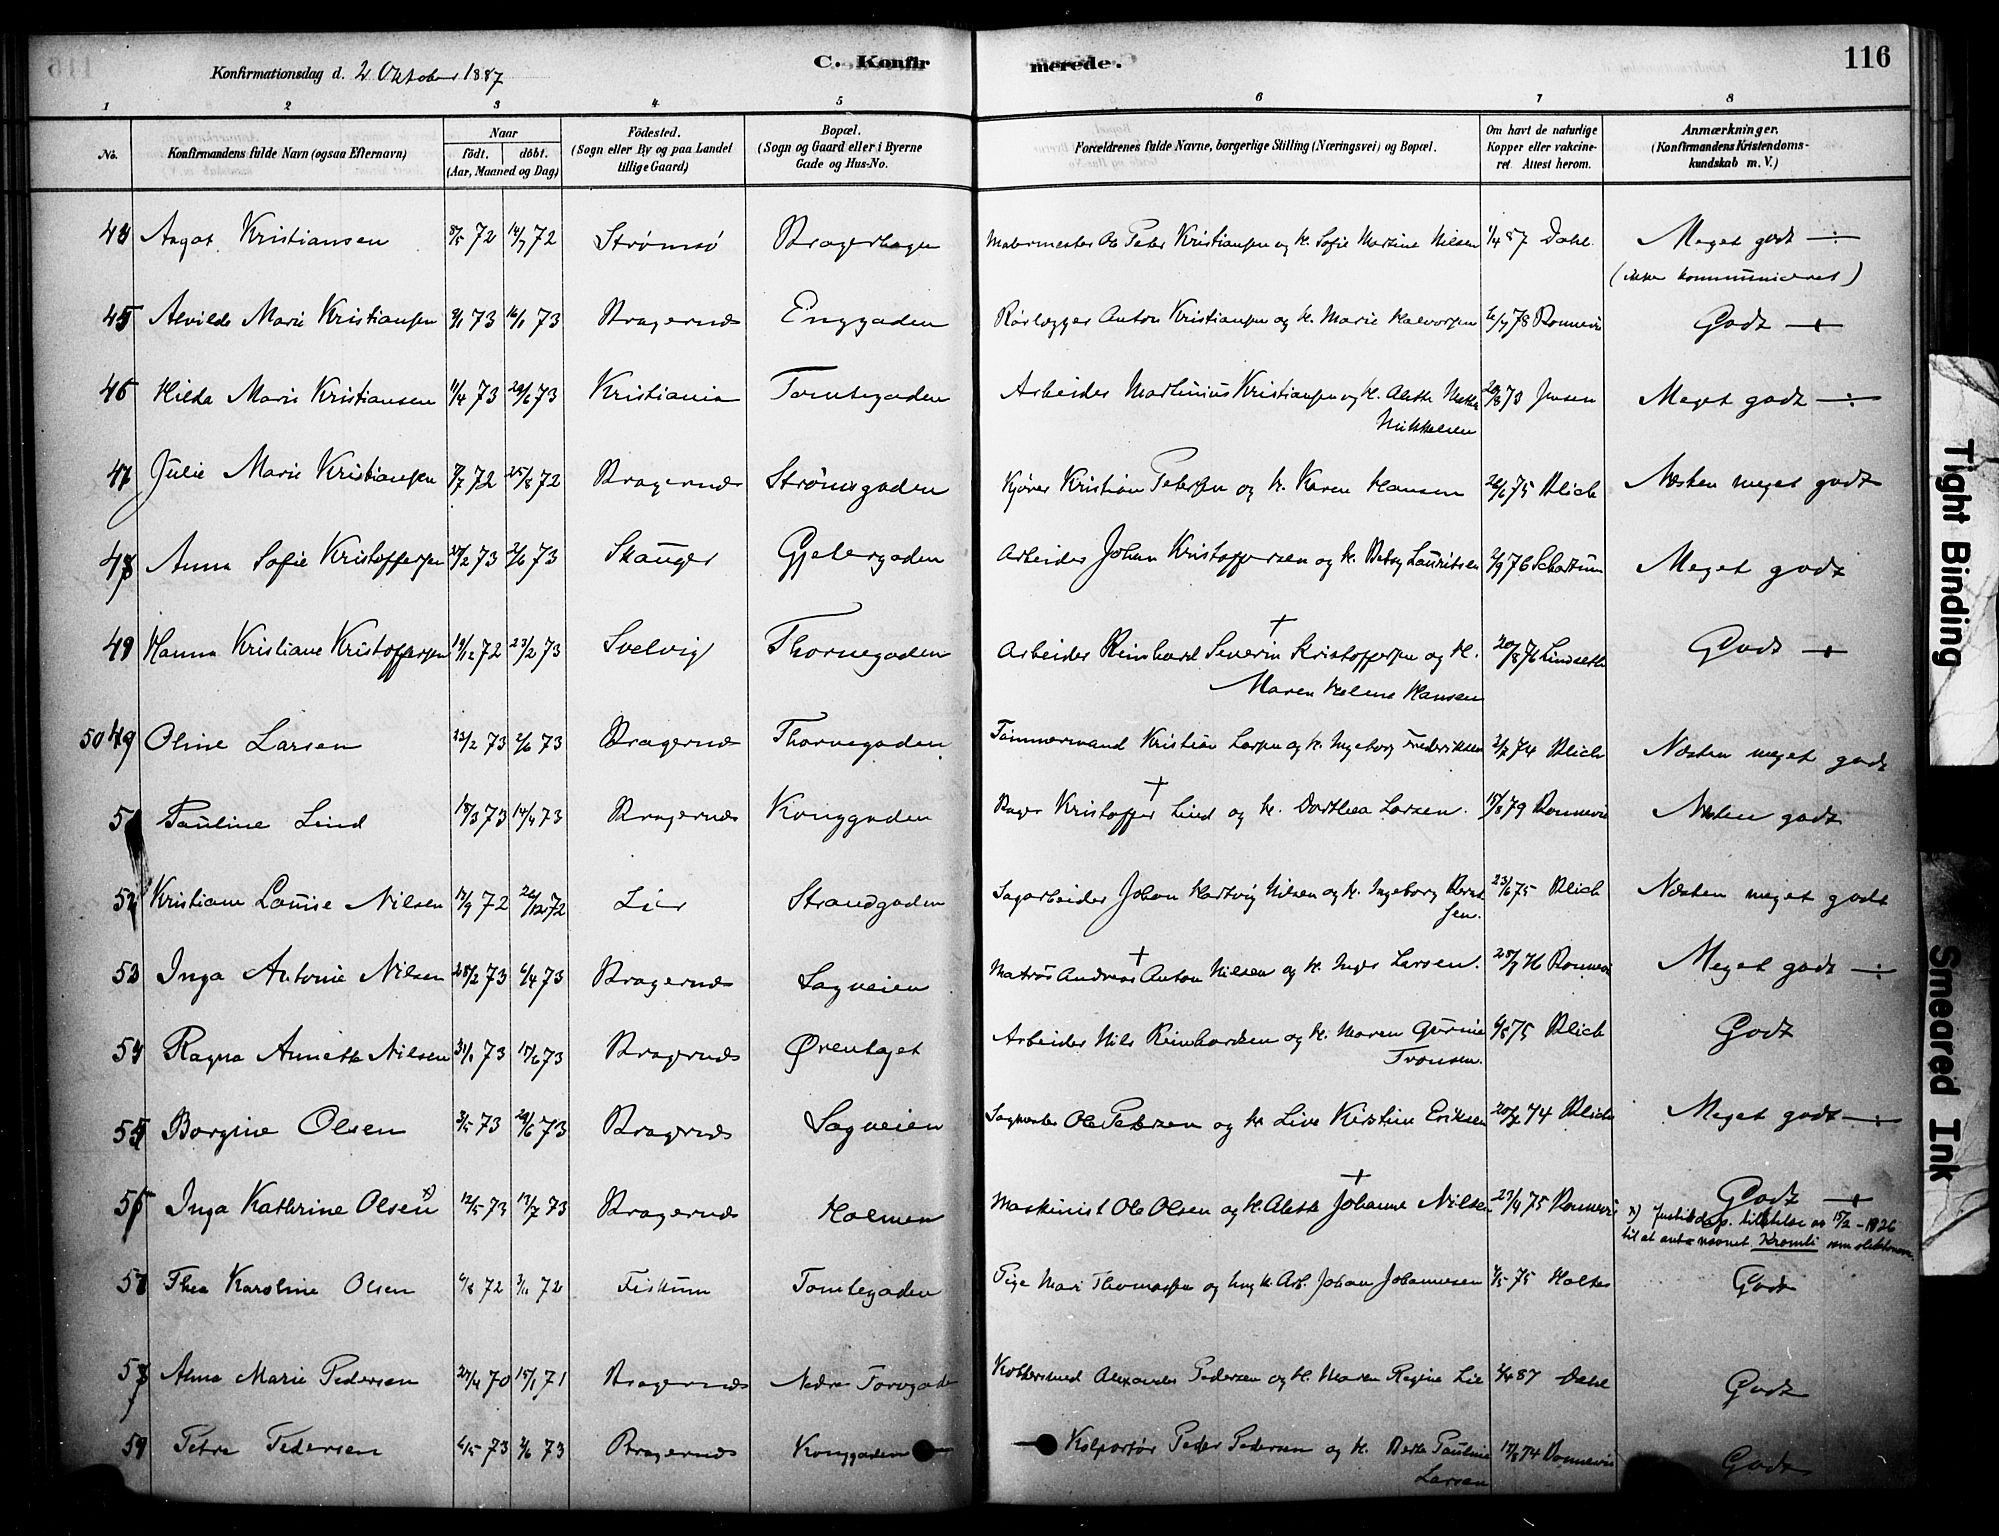 116
Konfirmationsdag d. 2 Oktober 1887
C. Konfir merede.
1 2 3 4 5 6 7 8
No.
Konfirmandens fulde Navn (ogsaa Efternavn)
Naar
födt. döbt.
(Aar, Maaned og Dag)
Födested.
(Sogn eller By og paa Landet
tillige Gaard)
Bopæl.
(Sogn og Gaard eller i Byerne
Gade og Hus-No.
Forældrenes fulde Navne, borgerlige Stilling (Næringsvei) og Bopæl.
Om havt de naturlige
Kopper eller vakcine-
ret. Attest herom.
Anmærkninger.
(Konfirmandens Kristendoms-
kundskab m. V.)
44 Aagot Kristiansen 8/5 72 14/7 72 Strømsö Bragerhagen Malermester Ole Peter Kristiansen og H. Sofie Martine Nilsen 1/4 87 Dahl. Meget godt ÷
(ikke kommuniceret)
45 Alvilde Marie Kristiansen 73 73 Bragernæs Enggaden Rörlægger Anton Kristiansen og H. Marie Halvorsen 78 Godt +
46 Hilda Marie Kristiansen 11/4 73 29/6 73 Kristiania Tomtegaden Arbeider Martinius Kristiansen og H. 73 Jensen Meget godt ÷
Mikkelsen
47 Julie Marie Kristiansen 72 25/8 72 Bragernæs Strömsgaden Kjörer Kristian Petersen og H. Karen Hansen 75 Blich Næsten meget godt
48 Anna Sofie Kristoffersen 73 73 Skauger Gjetergaden Arbeider Johan Kristoffersen og H. Betsy Lauritsen 76 Schartum Meget godt
49 Hanna Kristiane Kristoffersen 19/12 72 23/2 73 Svelvig Thornegaden Arbeider Reinhard Severin + Kristoffersen og H. 20/8 76 Lindseth Godt +
Maren Helene Hansen
50 49 Oline Larsen 23/2 73 2/6 73 Bragernæs Thornegaden Tömmermand Kristian Larsen og H. Ingeborg Frederiksen 74 Blich Næsten meget godt
51 Pauline Lind 18/3 73 14/4 73 Bragernæs Konggaden Kristoffer + Lind og H. Dorthea Larsen. 79 Næsten godt
52 Kristiane Louise Nilsen 17/9 72 26/12 72 Lier Strandgaden Sagarbeider Johan Hartvig Nilsen og H. Ingeborg Bernt 23/6 75 Blich Næsten meget godt
sen.
53 Inga Antonie Nilsen 28/2 73 6/4 73 Bragernæs Sagveien Matros Andreas + Anton Nilsen og H. Inger Larsen. 76 Meget godt ÷
54 Ragna Annette Nilsen 31/1 73 15/6 73 Bragernæs Ørentaget Arbeider Nils Reinhardsen og H. Maren Gurine 75 Blich Godt
Tronsen.
55 Borgine Olsen 3/5 73 29/6 73 Bragernæs Sagveien Ole Petersen og H. Live Kirstine Eriksen 74 Blich Meget godt ÷
56 Inga Kathrine Olsen x) 12/5 73 13/7 73 Bragernæs Holmen Maskinist Ole Olsen og H. Alette + Johanne Nilsen 23/4 75 Godt +
x) Justitsdep. tillatelse av 15/2 - 1926
til at anta navnet Kromli som slektsnavn
57 Thea Karoline Olsen 6/8 72 3/11 72 Fiskum Tomtegaden Pige Mari Thomasen og Ung k. Arb. Johan Johannesen 75 Holter Godt
58 Alma Marie Pedersen 27/4 70 15/1 71 Bragernæs Nedre Torvgade Kobbersmed Alexander Pedersen og H. Maren Regine Lie 87 Dahl Godt
59 Petra Pedersen 6/5 73 2/6 73 Bragernæs Konggaden Kolportör Peder Pedersen og H. Berte Pauline 74 Godt
Larsen
Tight Binding
Smeared Ink